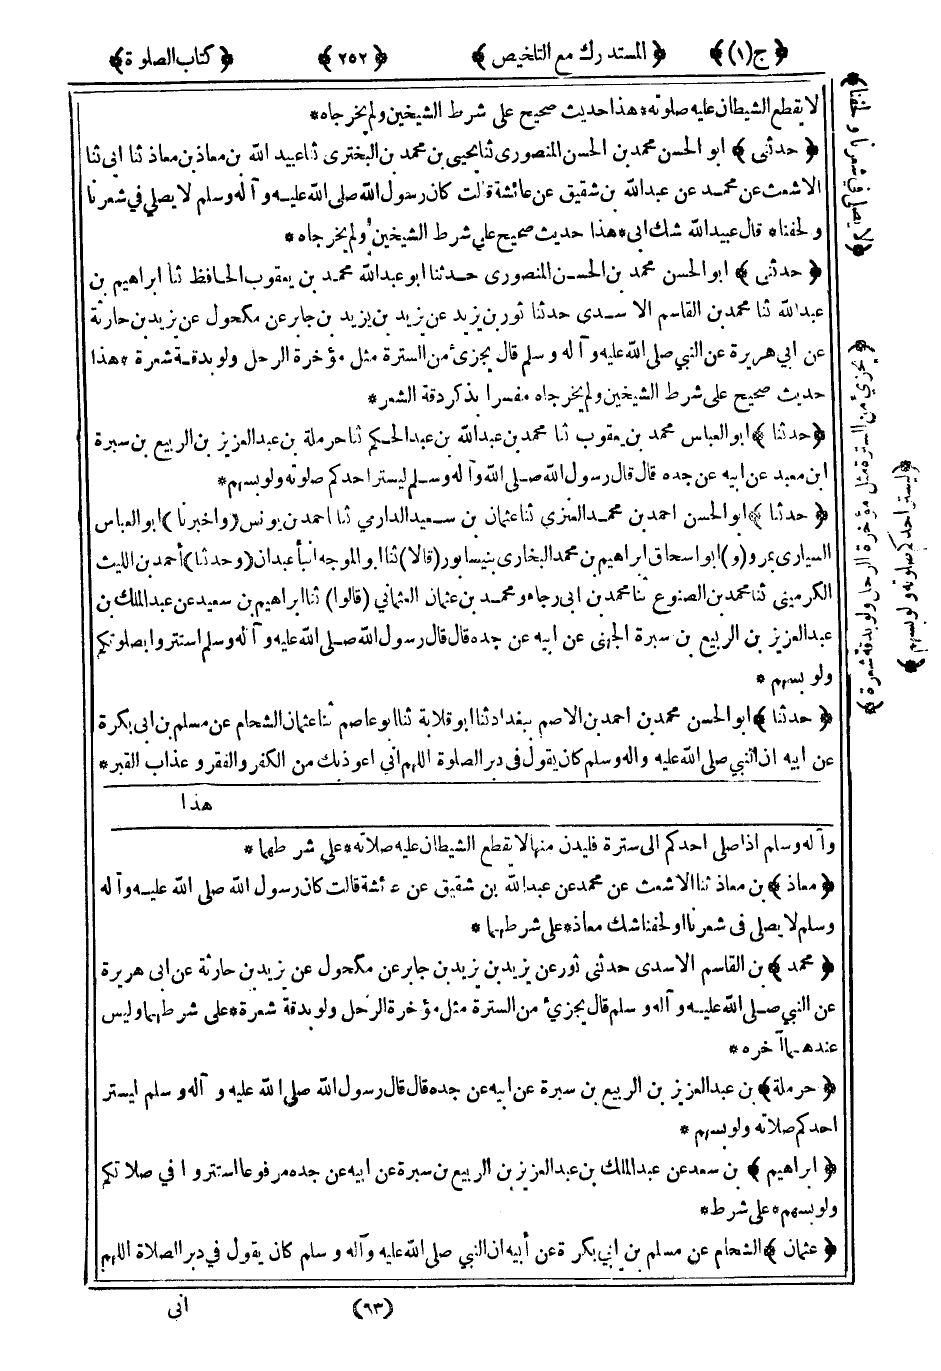 ﴿ ج (١) ﴾ ﴿ المستدرك مع التلخيص ﴾ ﴿ ٢٥٢ ﴾ ﴿ كتاب الصلوة ﴾
لا يقطع الشيطان عليه صلوته * هذا حديث صحيح على شرط الشيخين ولم يخرجاه *
﴿ حدثنى ﴾ ابو الحسن محمد بن الحسن المنصورى ثنا يحيى بن محمد بن البخترى ثنا عبيد الله بن معاذ بن معاذ ثنا ابى ثنا
الاشعث عن محمد عن عبدالله بن شقيق عن عائشة قالت كان رسول الله صلى الله عليه و آله وسلم لا يصلي في شعرنا
ولحفنا * قال عبيدالله شك ابى * هذا حديث صحيح علي شرط الشيخين ولم يخرجاه *
﴿ حدثنى ﴾ ابو الحسن محمد بن الحسن المنصورى حدثنا ابو عبدالله محمد بن يعقوب الحافظ ثنا ابراهيم بن
عبدالله ثنا محمد بن القاسم الاسدى حدثنا ثور بن يزيد عن يزيد بن يزيد بن جابر عن مكحول عن يزيد بن حارثة
عن ابي هريرة عن النبي صلى الله عليه و آله و سلم قال يجزئ من السترة مثل مؤخرة الرحل ولو بدقة شعرة * هذا
حديث صحيح على شرط الشيخين ولم يخرجاه مفسرا بذكر دقة الشعر *
﴿ حدثنا ﴾ ابو العباس محمد بن يعقوب ثنا محمد بن عبدالله بن عبدالحكم ثنا حرملة بن عبدالعزيز بن الربيع بن سبرة
ابن معبد عن ابيه عن جده قال قال رسول الله صلى الله وآله وسلم ليستر احدكم صلوته ولو بسهم *
﴿ حدثنا ﴾ ابو الحسن احمد بن محمد العنزي ثنا عثمان بن سعيد الدارمي ثنا احمد بن يونس (واخبرنا) ابو العباس
السيارى بمرو (و) ابو اسحاق ابراهيم بن محمد البخارى بنيسابور (قالا) ثنا ابو الموجه انبأ عبدان (وحدثنا) أحمد بن الليث
الكرمينى ثنا محمد بن الصنوع ثنا محمد بن ابى رجاء و محمد بن عثمان العثماني (قالوا) ثنا ابراهيم بن سعيد عن عبدالملك بن
عبدالعزيز بن الربيع بن سبرة الجهنى عن ابيه عن جده قال قال رسول الله صلى الله عليه و آله وسلم استتروا بصلوتكم
ولو بسهم *
﴿ حدثنا ﴾ ابو الحسن محمد بن احمد بن الاصم ببغداد ثنا ابو قلابة ثنا ابو عاصم ثنا عثمان الشحام عن مسلم بن ابى بكرة
عن ابيه ان النبي صلى الله عليه واله وسلم كان يقول فى دبر الصلوة اللهم اني اعوذ بك من الكفر والفقر و عذاب القبر *
هذا
وآله وسلم اذا صلى احدكم الى سترة فليدن منها لا يقطع الشيطان عليه صلاته * علي شرطهما *
﴿ معاذ ﴾ بن معاذ ثنا الاشعث عن محمد عن عبدالله بن شقيق عن عائشة قالت كان رسول الله صلى الله عليه وآله
وسلم لا يصلى فى شعرنا او لحفنا شك معاذ * على شرطهما *
﴿ محمد ﴾ بن القاسم الاسدى حدثنى ثور عن يزيد بن يزيد بن جابر عن مكحول عن يزيد بن حارثة عن ابى هريرة
عن النبي صلى الله عليه و آله و سلم قال يجزئ من السترة مثل مؤخرة الرحل ولو بدقة شعرة * على شرطهما وليس
عندهما آخره *
﴿ حرملة ﴾ بن عبدالعزيز بن الربيع بن سبرة عن ابيه عن جده قال قال رسول الله صلى الله عليه و آله و سلم ليستر
احدكم صلاته ولو بسهم *
﴿ ابراهيم ﴾ بن سعد عن عبدالملك بن عبدالعزيز بن الربيع بن سبرة عن ابيه عن جده مرفوعا استتروا في صلاتكم
ولو بسهم * على شرط *
﴿ عثمان ﴾ الشحام عن مسلم بن ابي بكرة عن أبيه ان النبي صلى الله عليه وآله و سلم كان يقول في دبر الصلاة اللهم
(٦٣) انى
﴿ لا يصلى فى شعرنا و لحفنا ﴾
﴿ يجزئ من السترة مثل مؤخرة الرحل ولو بدقة شعرة ﴾
﴿ ليستر احدكم صلوته ولو بسهم ﴾